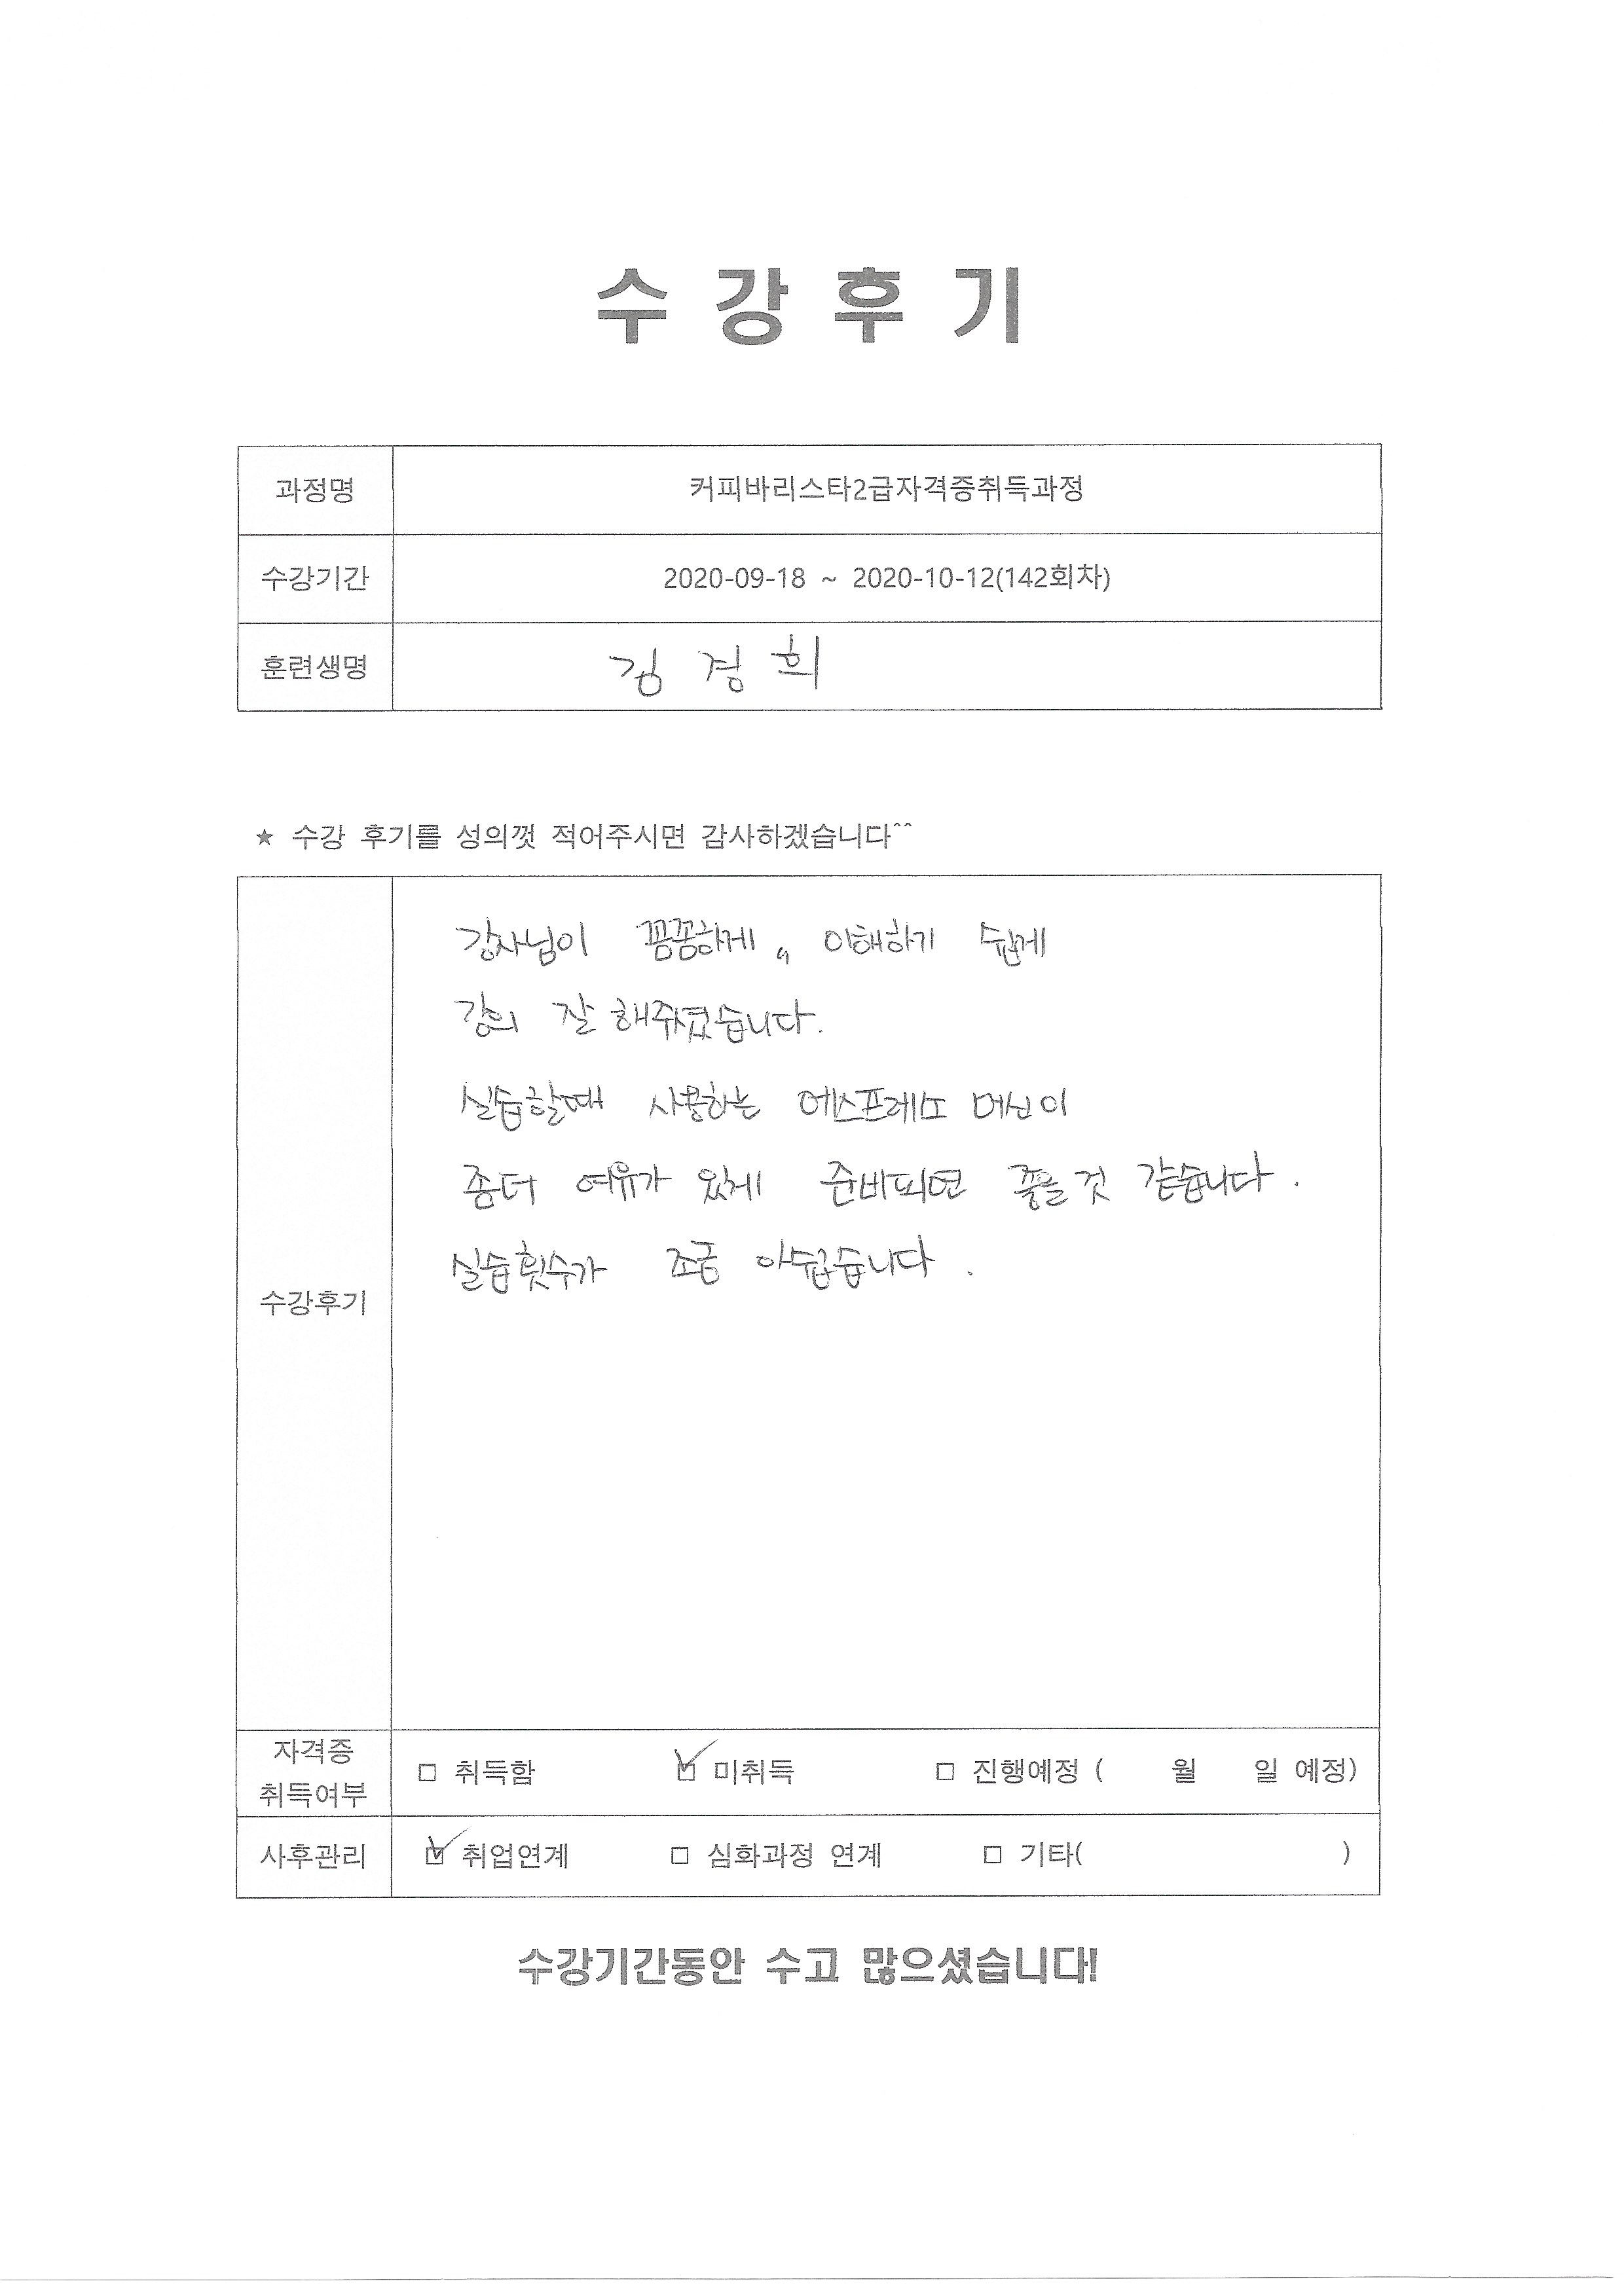 수 강 후 기
과정명 커피바리스타2급자격증취득과정
수강기간 2020-09-18 ~ 2020-10-12(142회차)
훈련생명 김 경 희
★ 수강 후기를 성의껏 적어주시면 감사하겠습니다^^
강사님이 꼼꼼하게, 이해하기 쉽게
강의 잘 해주셨습니다.
실습할때 사용하는 에스프레소 머신이
좀더 여유가 있게 준비되면 좋을것 같습니다.
실습횟수가 조금 아쉽습니다.
수강후기
자격증
취득여부
□ 취득함 ☑ 미취득 □ 진행예정 ( 월 일 예정)
사후관리 ☑ 취업연계 □ 심화과정 연계 □ 기타( )
수강기간동안 수고 많으셨습니다!